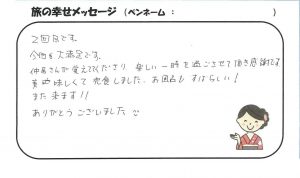 旅の幸せメッセージ（ペンネーム：　　　　　）
2回目です。
今回も大満足です。
仲居さんが覚えてくださり、楽しい一時を過ごさせて頂き感謝です
美味しくて完食しました。お風呂もすばらしい！
また来ます!!
ありがとうございました